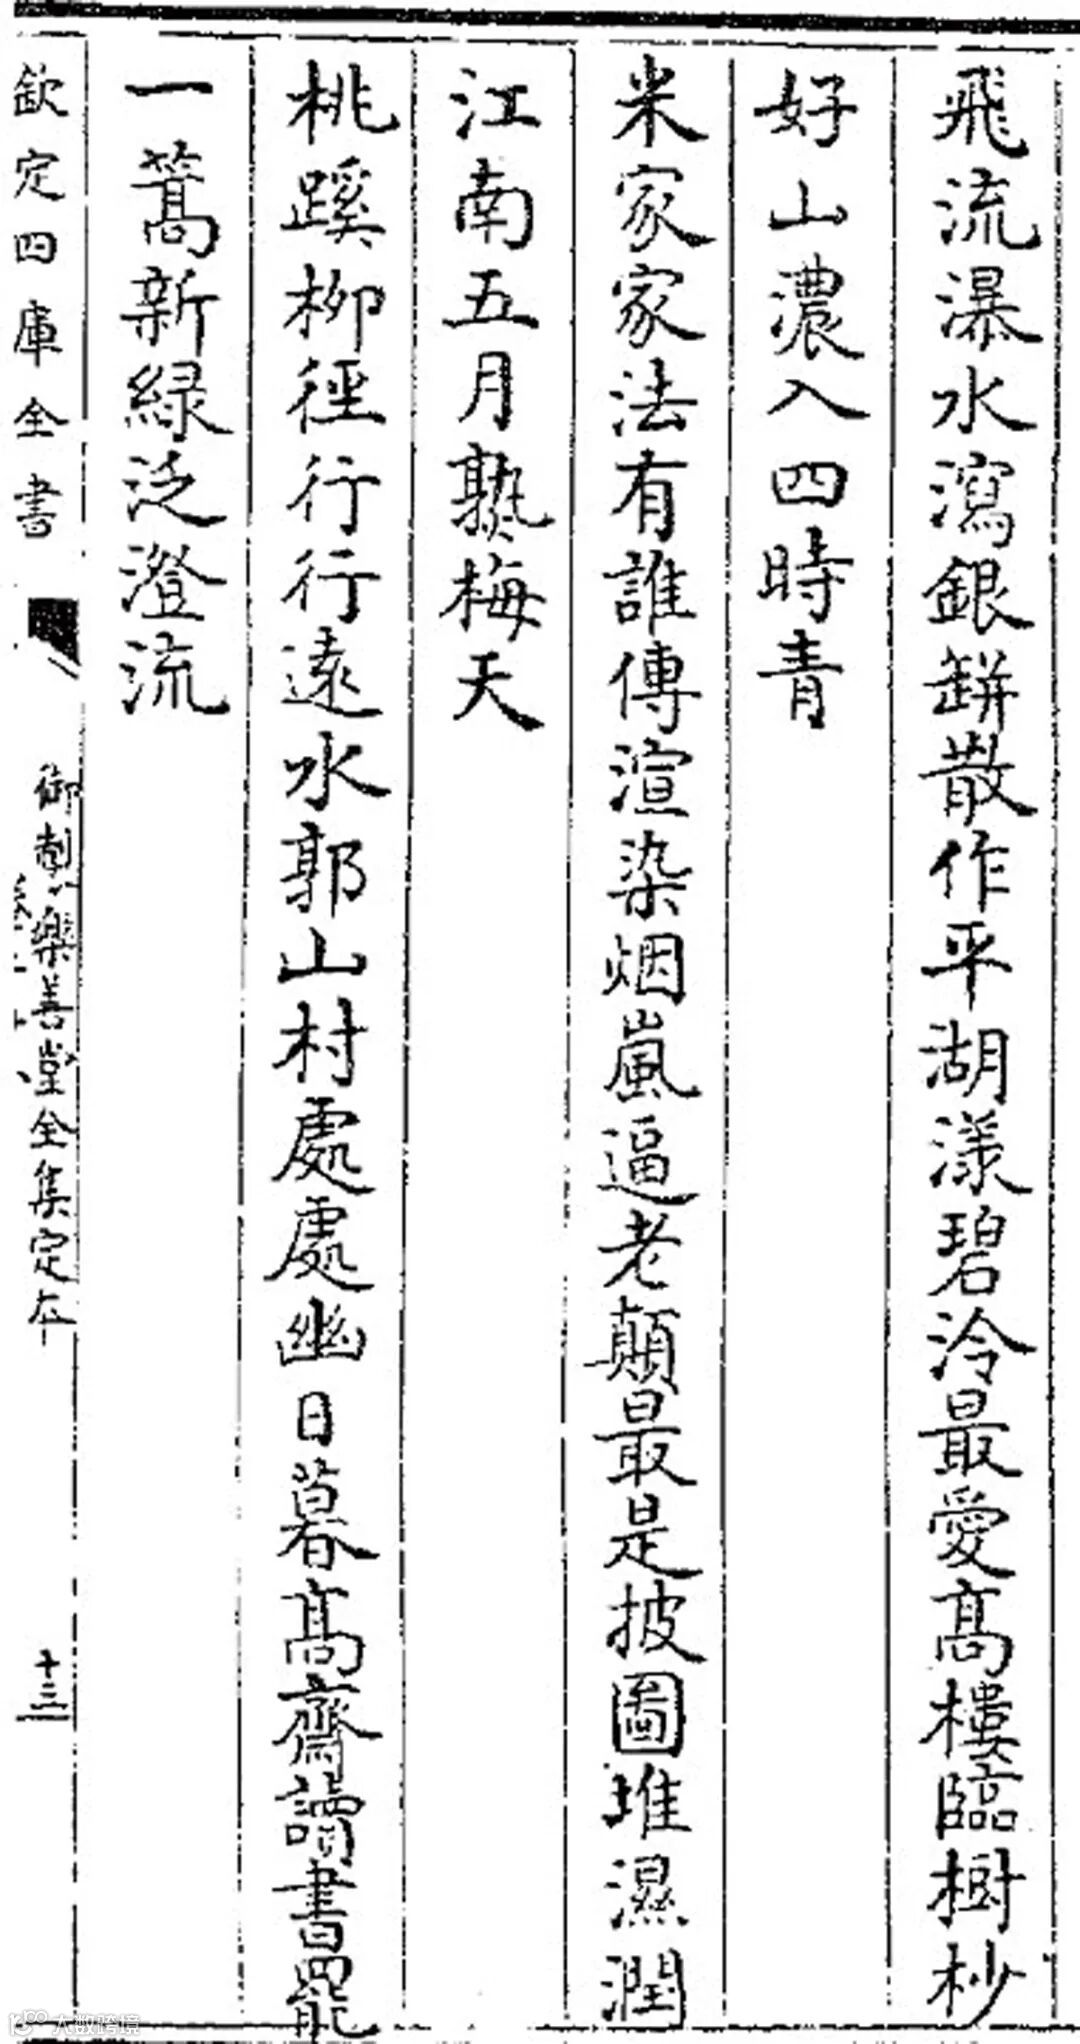 飛流瀑水瀉銀缾散作平湖漾碧泠最愛高樓臨樹杪
好山濃入四時青
米家家法有誰傳渲染烟嵐逼老顛最是披圖堆濕潤
江南五月熟梅天
桃蹊柳徑行行遠水郭山村處處幽日暮高齋讀書罷
一篙新綠泛澄流
欽定四庫全書
御製樂善堂全集定本
十三
大数跨境